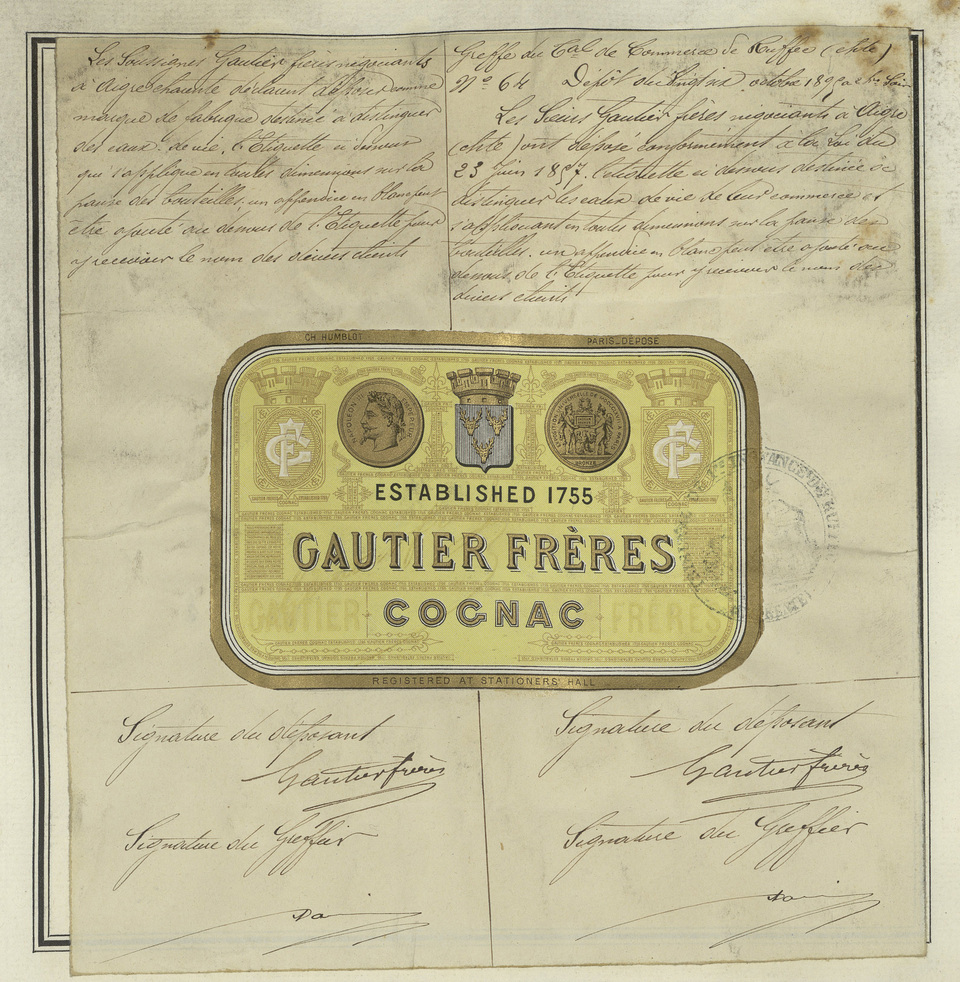 Les Soussignés Gautier frères négociants
à Aigre charente déclarent déposer comme
marque de fabrique destinée à distinguer
des eaux-de-vie, l'Etiquette ci dessous
qui s'applique en toutes dimensions sur la
panse des bouteilles, un appendice en blanc peut
être ajouté au dessous de l'Etiquette pour
y recevoir le nom des divers clients
Greffe du Tal de Commerce de Ruffec (chte)
No 64 Depôt du vingt six octobre 18
Les Sieurs Gautier frères négociants à Aigre
(chte) ont déposé conformément à la Loi du
23 Juin 1857, l'etiquette ci dessous destinée à
distinguer les eaux de vie de leur commerce et
s'appliquant en toutes dimensions sur la panse des
bouteilles. un appendice en blanc peut être ajouté au
dessous de l'Etiquette pour y recevoir le nom des
divers clients
CH. HUMBLOT
PARIS_DÉPOSÉ
NAPOLEON III EMPEREUR
BRONZE
ESTABLISHED 1755
GAUTIER FRÈRES
GAUTIER COGNAC FRÈRES
REGISTERED AT STATIONERS' HALL
Signature du déposant
Gautier frères
Signature du Greffier
Signature du déposant
Gautier frères
Signature du Greffier